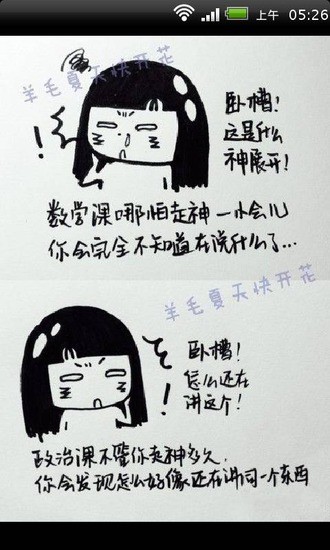 上午 05:26
羊毛夏天快开花
卧槽!
这是什么
神展开!
!
数学课哪怕走神一小会儿
你会完全不知道在说什么了...
羊毛夏天快开花
卧槽!
怎么还在
讲这个!
!
政治课不管你走神多久.
你会发现怎么好像还在讲同一个东西